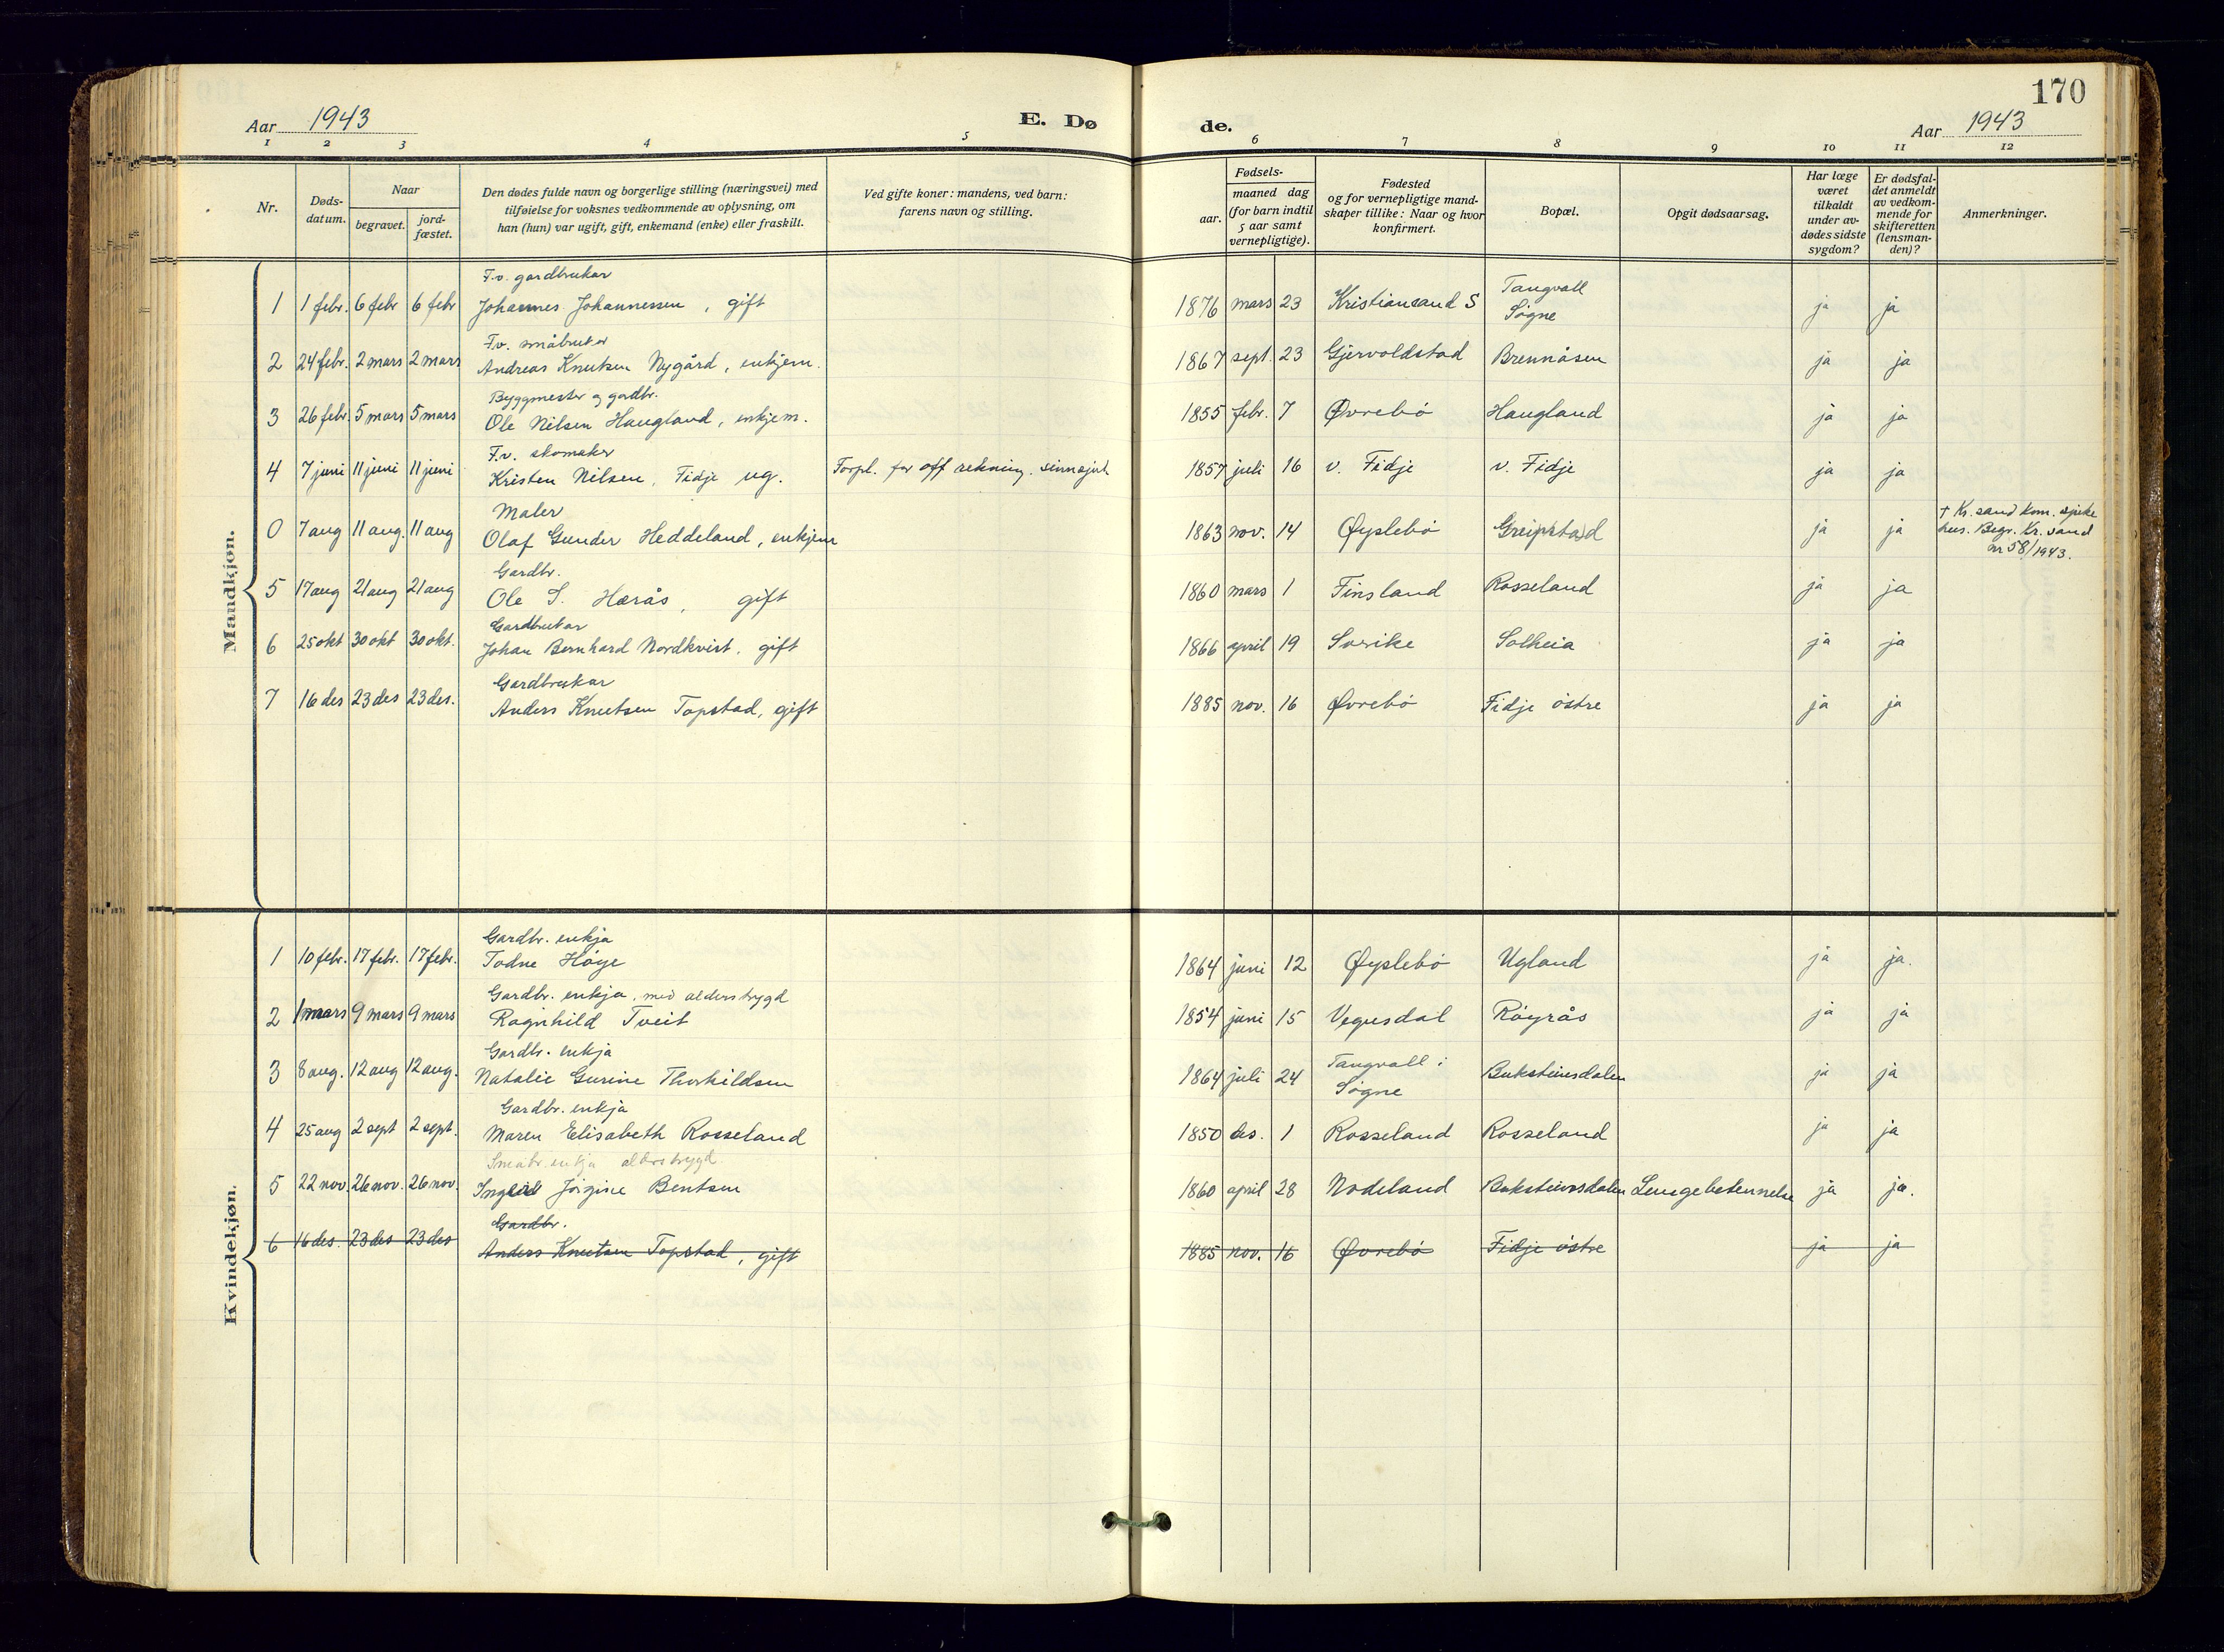 170
Aar 1943
E. Dø
de.
Aar 1943
1 2 3 4 5 6 7 8 9 10 11 12
Nr.
Døds-
datum.
Naar
begravet.
jord-
fæstet.
Den dødes fulde navn og borgerlige stilling (næringsvei) med
tilføielse for voksnes vedkommende av oplysning, om
han (hun) var ugift, gift, enkemand (enke) eller fraskilt.
Ved gifte koner: mandens, ved barn:
farens navn og stilling.
Fødsels-
aar.
maaned dag
(for barn indtil
5 aar samt
vernepligtige).
Fødested
og for vernepligtige mand-
skaper tillike: Naar og hvor
konfirmert.
Bopæl.
Opgit dødsaarsag.
Har læge
været
tilkaldt
under av-
dødes sidste
sygdom?
Er dødsfal-
det anmeldt
av vedkom-
mende for
skifteretten
(lensman-
den)?
Anmerkninger.
Mandkjøn.
F.v. gardbrukar
1 1 febr. 6 febr 6 febr Johannes Johannessen, gift 1876 mars 23 Kristiansand S Tangvall Søgne ja ja
F.v. småbruker
2 24 febr. 2 mars 2 mars Andreas Knutsen Nygård, enkjem. 1867 sept. 23 Gjervoldstad Brennåsen ja ja
Byggmester og gardbr.
3 26 febr. 5 mars 5 mars Ole Nilsen Haugland, enkjem. 1855 febr. 7 Øvrebö Haugland ja ja
F.v. skomaker
4 7 juni 11 juni 11 juni Kristen Nilsen, Fidje ug. Forpl. for off rekning. sinnsjuk 1857 juli 16 v. Fidje v. Fidje ja ja
Maler
0 7 aug 11 aug. 11 aug Olaf Gunder Heddeland, enkjem 1863 nov. 14 Øyslebö Greipstad ja ja † Kr. sand kom. sjuke
hus. Begr. Kr. sand
nr 58/1943.
Gardbr.
5 17 aug 21 aug 21 aug Ole S. Herås, gift 1860 mars 1 Finsland Rosseland ja ja
Gardbrukar
6 25 okt 30 okt 30 okt. Johan Bernhard Nordkvist, gift 1866 april 19 Sverike Solheia ja ja
Gardbrukar
7 16 des 23 des 23 des. Anders Knutsen Topstad, gift 1885 nov. 16 Øvrebö Fidje östre ja ja
Kvindekjøn.
Gardbr. enkja
1 10 febr. 17 febr. 17 febr. Todne Höye 1864 juni 12 Øyslebö Ugland ja ja.
Gardbr. enkja, med alderstrygd
2 1 mars 9 mars 9 mars Ragnhild Tveit 1854 juni 15 Vegusdal Röyrås ja ja
Gardbr. enkja
3 8 aug. 12 aug 12 aug. Natalie Gurine Thorkildsen 1864 juli 24 Tangvall i Søgne Buksteinsdalen ja ja
Gardbr. enkja
4 25 aug 2 sept 2 sept. Maren Elisabeth Rosseland 1850 des. 1 Rosseland Rosseland ja ja
Småbr. enkja alderstrygd
5 22 nov. 26 nov. 26 nov. Jörgine Bentsen 1860 april 28 Nodeland Buksteinsdalen Lungebetennelse ja ja.
Gardbr.
6 16 des. 23 des 23 des Anders Knutsen Topstad, gift 1885 nov. 16 Øvrebö Fidje östre ja ja